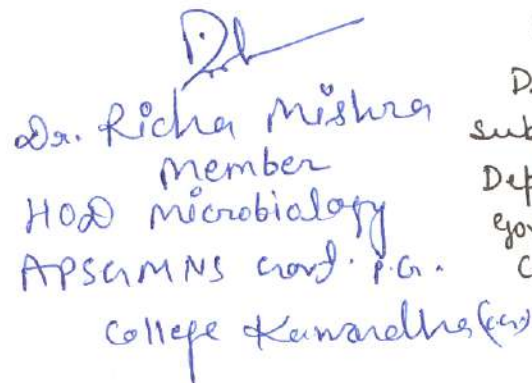 Dr. Richa Mishra
Member
HOD Microbiology
APSGMNS Govt. P.G.
College Kawardha (C.G.)
D
Sub
Dep
Gov
C